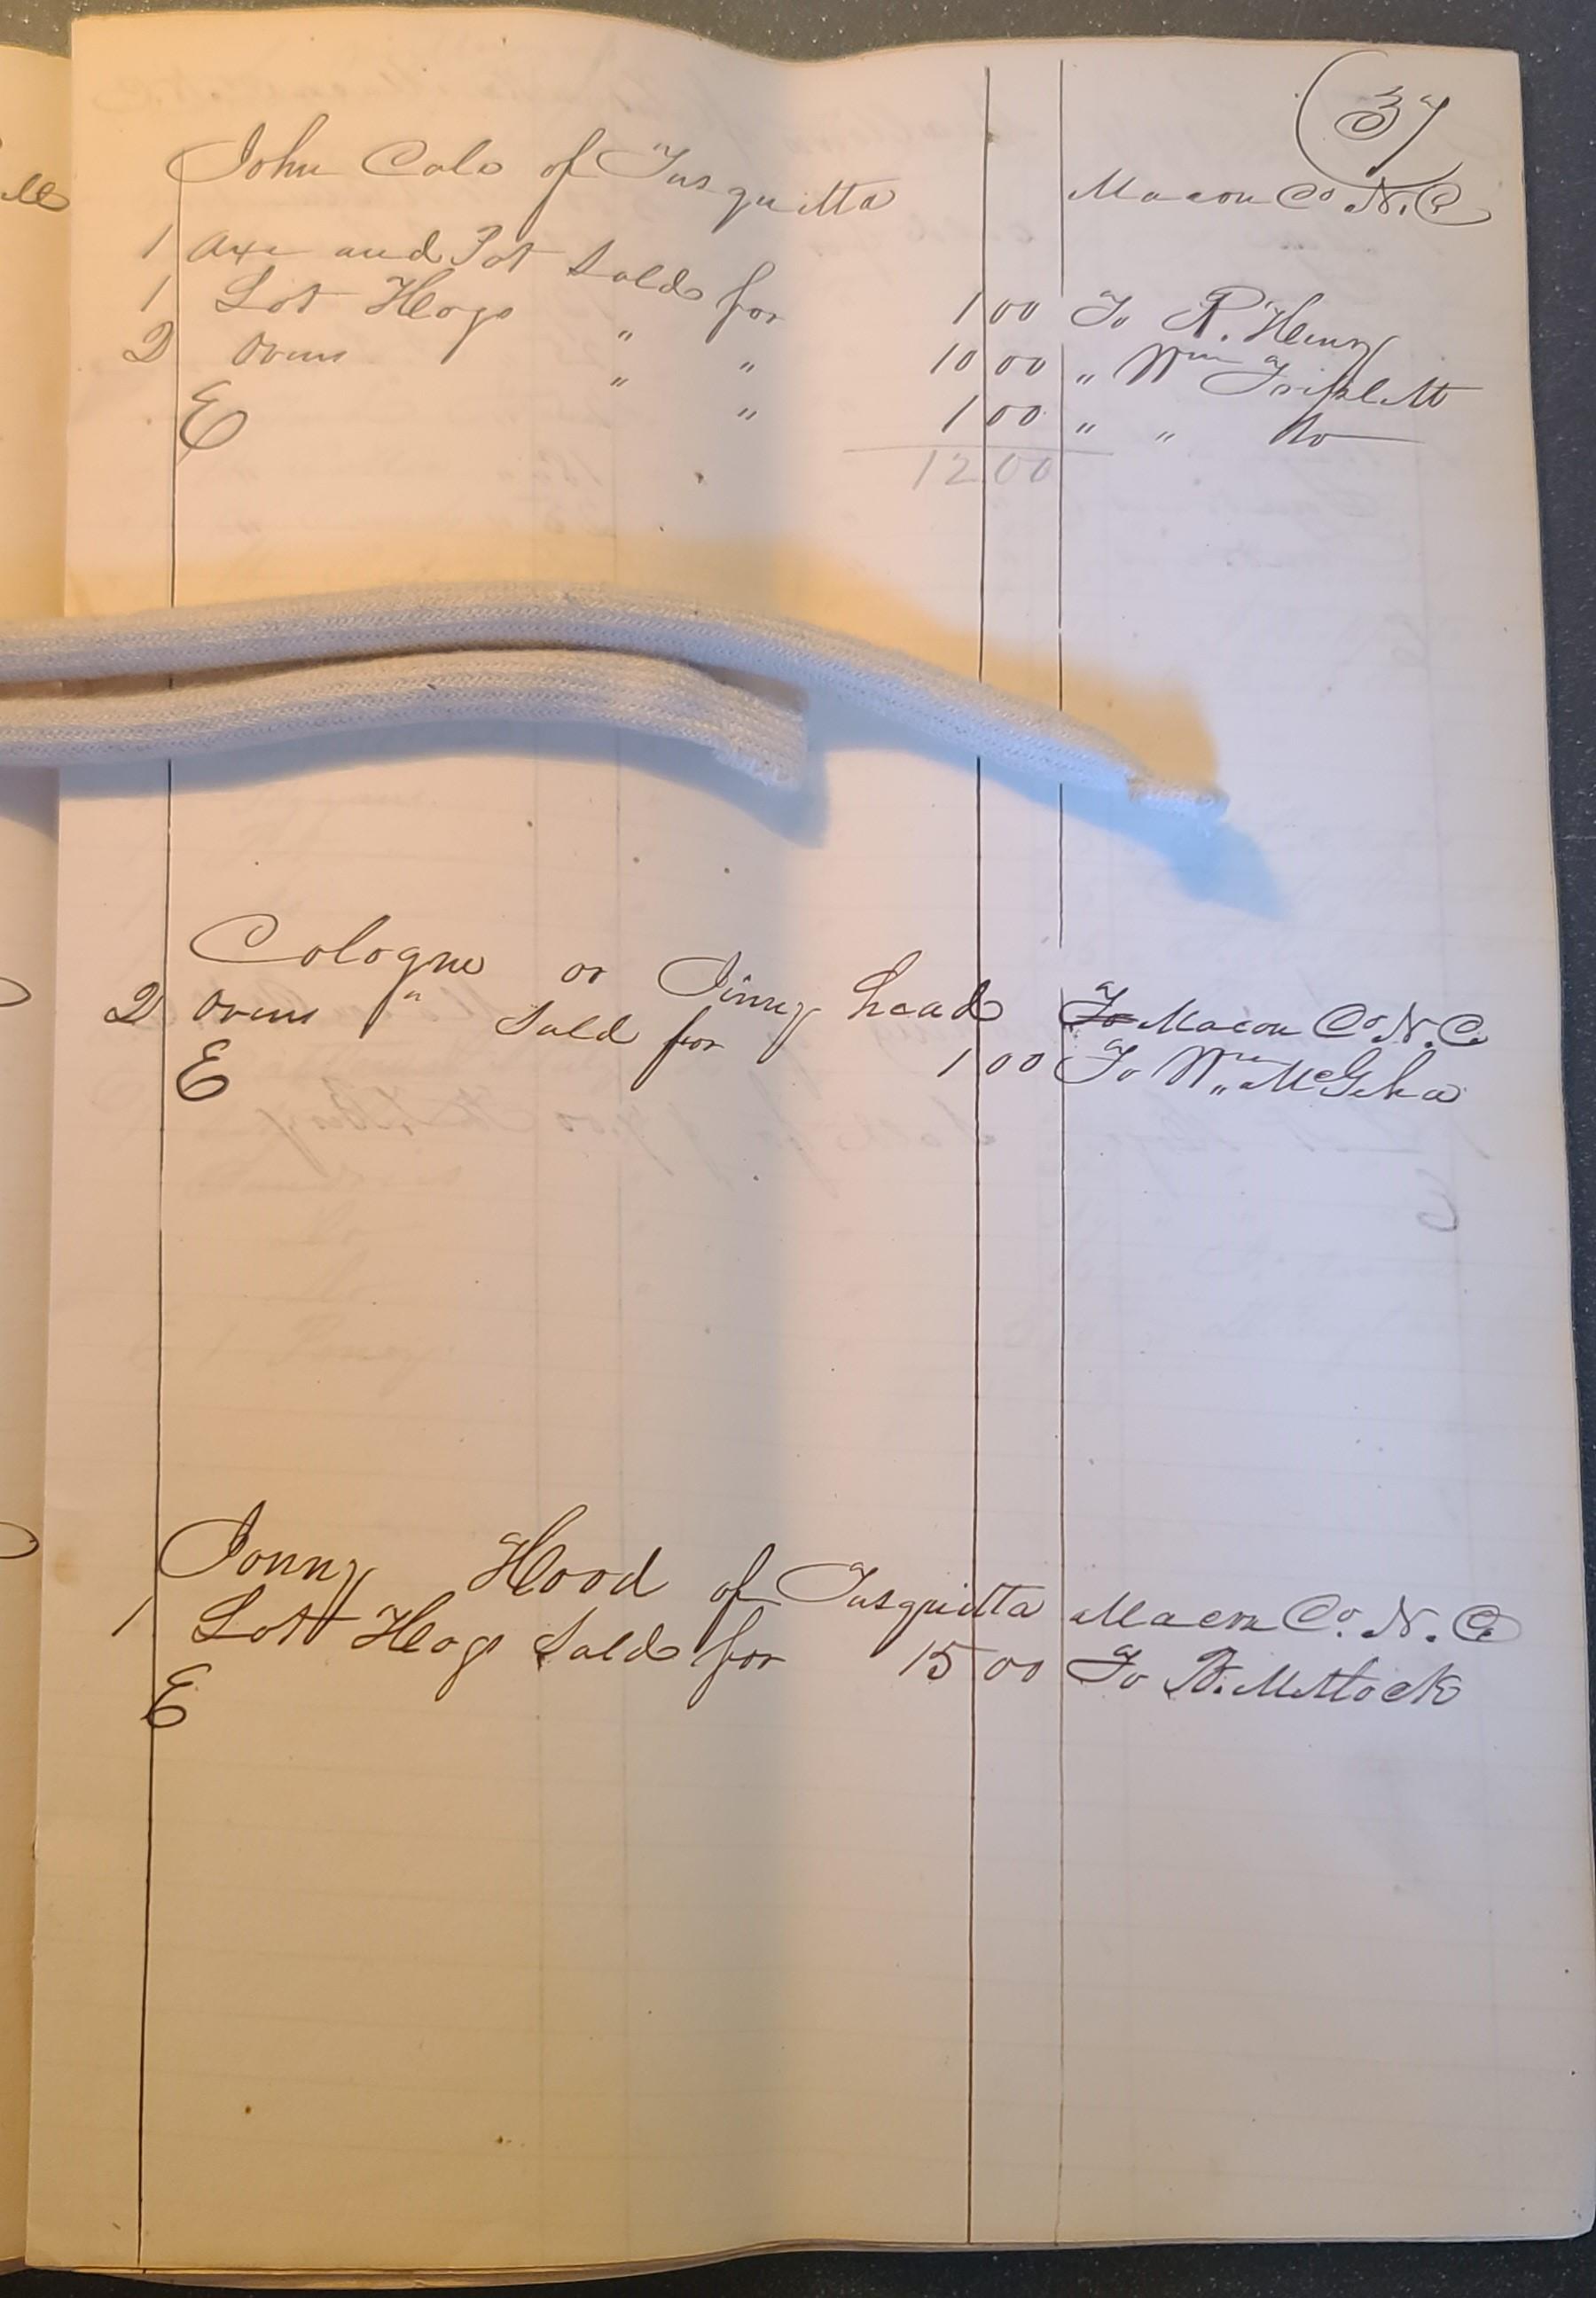 37
John Cole of Tusquitta Macon Co N.C.
1 Axe and Pot Sold for 1 00 To R. Henry
1 Lot Hogs " " 10 00 " Wm Triplett
2 Ovens " " 1 00 " " Do
E 12 00
Cologne or Jinny head To Macon Co N.C.
2 Ovens " Sold for 1 00 To Wm McGeha
E
Jonny Hood of Tusquitta Macon Co. N.C.
1 Lott Hogs Sold for 15 00 To B. Mttock
E